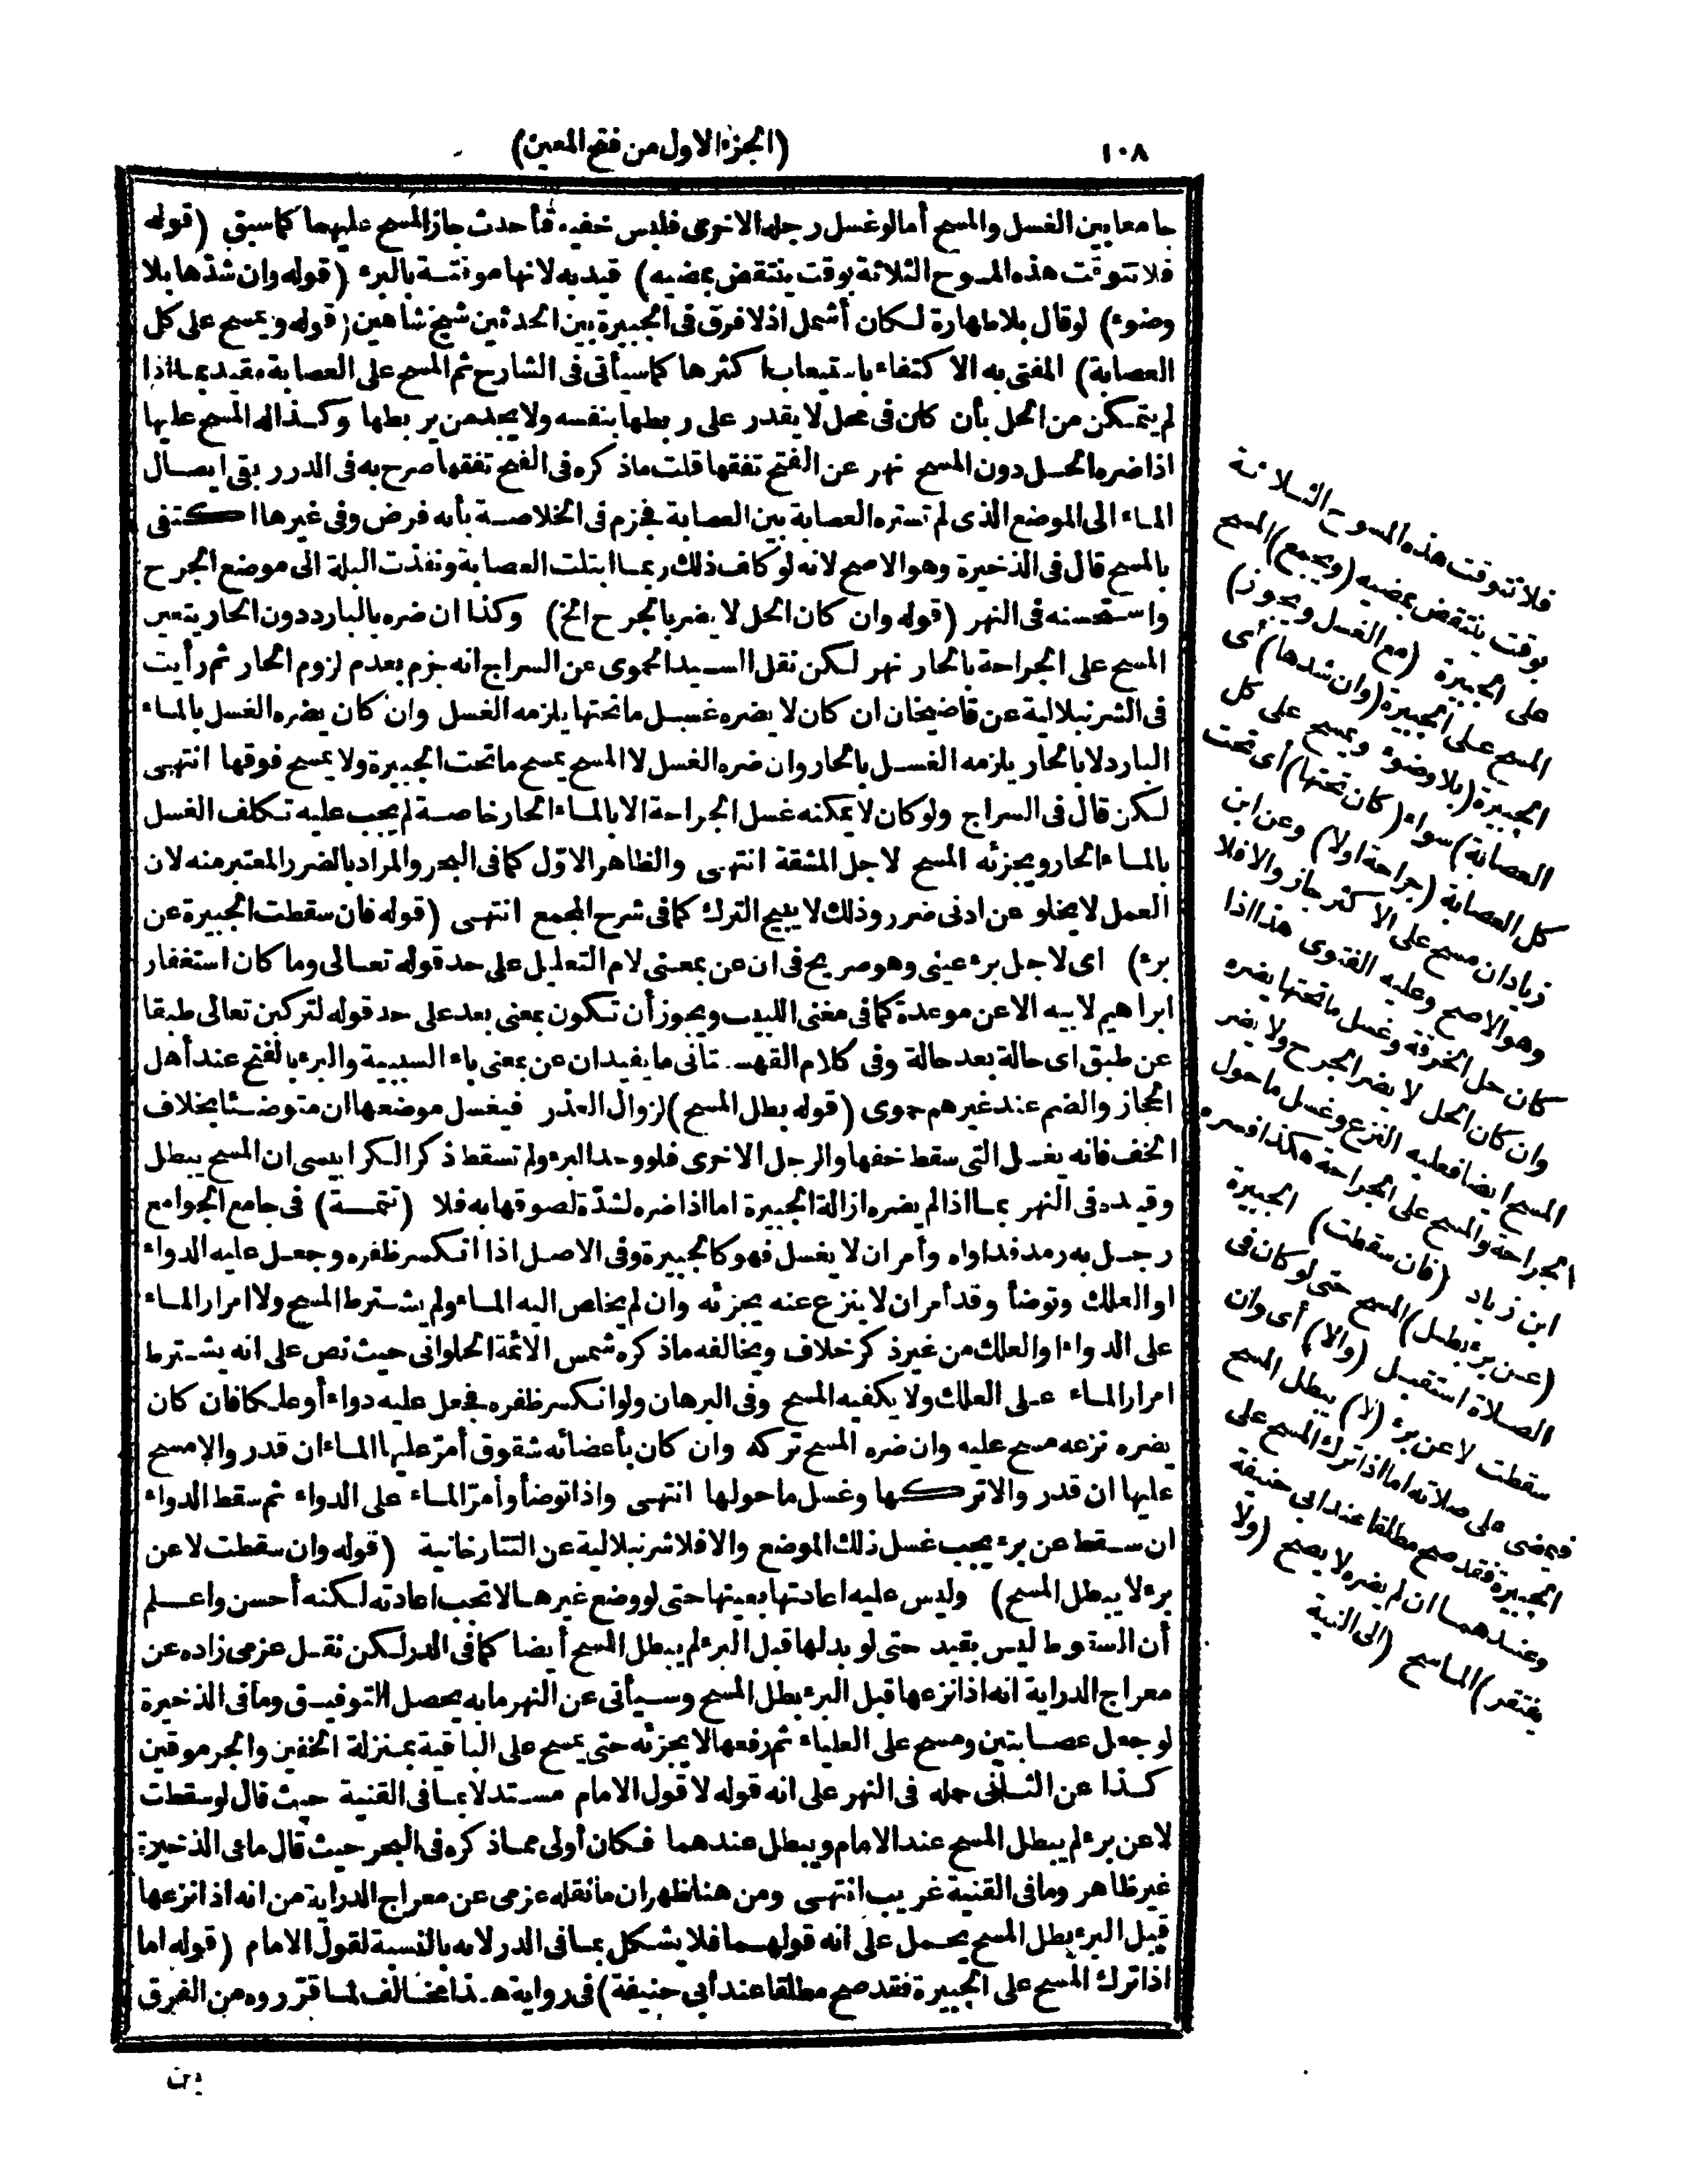 ١٠٨
(الجزء الاول من فتح المعين)
جامعا بين الغسل والمسح أما لو غسل رجله الاخرى فلبس خفيه فأحدث جاز المسح عليهما كما سبق (قوله
فلا تتوقت هذه المسوح الثلاثة بوقت ينتقض بمضيه) قيد به لانها موقتة بالبرء (قوله وان شدّها بلا
وضوء) لو قال بلا طهارة لكان أشمل اذ لا فرق فى الجبيرة بين الحدثين شيخ شاهين (قوله ويمسح على كل
العصابة) المفتى به الاكتفاء باستيعاب اكثرها كما سيأتى فى الشارح ثم المسح على العصابة مقيد بما اذا
لم يتمكن من الحل بأن كان فى محل لا يقدر على ربطها بنفسه ولا يجد من يربطها وكذا له المسح عليها
اذا ضره الحل دون المسح نهر عن الفتح تفقها قلت ماذكره فى الفتح تفقها صرح به فى الدرر بقى ايصال
الماء الى الموضع الذى لم تستره العصابة بين العصابة فجزم فى الخلاصة بأنه فرض وفى غيرها اكتفى
بالمسح قال فى الذخيرة وهو الاصح لانه لو كلف ذلك ربما ابتلت العصابة ونفذت البلة الى موضع الجرح
واستحسنه فى النهر (قوله وان كان الحل لا يضر بالجرح الخ) وكذا ان ضره بالبارد دون الحار يتعين
المسح على الجراحة بالحار نهر لكن نقل السيد الحموى عن السراج انه جزم بعدم لزوم الحار ثم رأيت
فى الشرنبلالية عن قاضيخان ان كان لا يضره غسل ماتحتها يلزمه الغسل وان كان يضره الغسل بالماء
البارد لا بالحار يلزمه الغسل بالحار وان ضره الغسل لا المسح يمسح ماتحت الجبيرة ولا يمسح فوقها انتهى
لكن قال فى السراج ولو كان لا يمكنه غسل الجراحة الا بالماء الحار خاصة لم يجب عليه تكلف الغسل
بالماء الحار ويجزئه المسح لاجل المشقة انتهى والظاهر الاوّل كما فى البحر والمراد بالضرر المعتبر منه لان
العمل لا يخلو عن ادنى ضرر وذلك لا يبيح الترك كما فى شرح المجمع انتهى (قوله فان سقطت الجبيرة عن
برء) اى لاجل برء عينى وهو صريح فى ان عن بمعنى لام التعليل على حد قوله تعالى وما كان استغفار
ابراهيم لابيه الا عن موعدة كما فى مغنى اللبيب ويجوز أن تكون بمعنى بعد على حد قوله لتركبن تعالى طبقا
عن طبق اى حالة بعد حالة وفى كلام القهستانى ما يفيد ان عن بمعنى باء السببية والبرء بالفتح عند أهل
الحجاز والضم عند غيرهم حموى (قوله بطل المسح) لزوال العذر فيغسل موضعها ان متوضئا بخلاف
الخف فانه يغسل التى سقط خفها والرجل الاخرى فلو وجد البرء ولم تسقط ذكر الكرابيسى ان المسح يبطل
وقيده فى النهر بما اذا لم يضره ازالة الجبيرة اما اذا ضره لشدّة لصوقها به فلا (تتمة) فى جامع الجوامع
رجل به رمد فداواه وأمر ان لا يغسل فهو كالجبيرة وفى الاصل اذا انكسر ظفره وجعل عليه الدواء
او العلك وتوضأ وقد أمر ان لا ينزع عنه يجزئه وان لم يخلص اليه الماء ولم يشترط المسح ولا امرار الماء
على الدواء او العلك من غير ذكر خلاف ويخالفه ماذكره شمس الائمة الحلوانى حيث نص على انه يشترط
امرار الماء على العلك ولا يكفيه المسح وفى البرهان ولو انكسر ظفره فجعل عليه دواء أو علكا فان كان
يضره نزعه مسح عليه وان ضره المسح تركه وان كان بأعضائه شقوق أمرّ عليها الماء ان قدر والا مسح
عليها ان قدر والا تركها وغسل ماحولها انتهى واذا توضأ وأمرّ الماء على الدواء ثم سقط الدواء
ان سقط عن برء يجب غسل ذلك الموضع والا فلا شرنبلالية عن التتارخانية (قوله وان سقطت لا عن
برء لا يبطل المسح) وليس عليه اعادتها بعينها حتى لو وضع غيرها لا تجب اعادته لكنه أحسن واعلم
أن السقوط ليس بقيد حتى لو بدلها قبل البرء لم يبطل المسح أيضا كما فى الدر لكن نقل عزمى زاده عن
معراج الدراية انه اذا نزعها قبل البرء بطل المسح وسيأتى عن النهر ما به يحصل التوفيق وما فى الذخيرة
لو جعل عصابتين ومسح على العلياء ثم رفعها لا يجزئه حتى يمسح على الباقية بمنزلة الخفين والجرموقين
كذا عن الثانى حمله فى النهر على انه قوله لا قول الامام مستدلا بما فى القنية حيث قال لو سقطت
لا عن برء لم يبطل المسح عند الامام ويبطل عندهما فكان أولى مما ذكره فى البحر حيث قال ما فى الذخيرة
غير ظاهر وما فى القنية غريب انتهى ومن هنا ظهر ان ما نقله عزمى عن معراج الدراية من انه اذا نزعها
قبل البرء بطل المسح يحمل على انه قولهما فلا يشكل بما فى الدر لانه بالنسبة لقول الامام (قوله اما
اذا ترك المسح على الجبيرة فقد صح مطلقا عند أبى حنيفة) فى رواية هذا مخالف لما قرروه من الفرق
بين
فلا تتوقت هذه المسوح الثلاثة
بوقت ينتقض بمضيه (ويجمع) المسح
على الجبيرة (مع الغسل ويجوز)
المسح على الجبيرة (وان شدها) أى
الجبيرة (بلا وضوء ويمسح على كل
العصابة) سواء (كان تحتها) أى تحت
كل العصابة (جراحة اولا) وعن ابن
زياد ان مسح على الاكثر جاز والا فلا
وهو الاصح وعليه الفتوى هذا اذا
كان حل الخرقة وغسل ماتحتها يضره
وان كان الحل لا يضر الجرح ولا يضر
المسح ايضا فعليه النزع وغسل ماحول
الجراحة والمسح على الجراحة هكذا فسره
ابن زياد (فان سقطت) الجبيرة
(عن برء بطل) المسح حتى لو كان فى
الصلاة استقبل (والا) أى وان
سقطت لا عن برء (لا) يبطل المسح
فيمضى على صلاته اما اذا ترك المسح على
الجبيرة فقد صح مطلقا عند ابى حنيفة
وعندهما ان لم يضره لا يصح (ولا
يفتقر) الماسح (الى النية